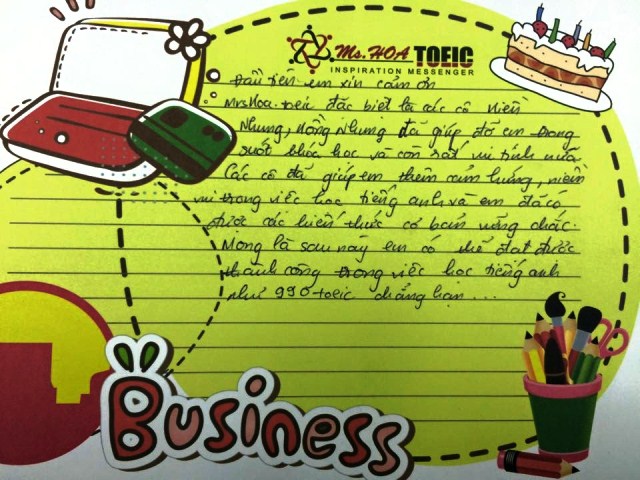 Ms. HOA TOEIC
INSPIRATION MESSENGER
Đầu tiên em xin cảm ơn
Mrs Hoa toeic đặc biệt là các cô Hiền
Nhung, Hồng Nhung đã giúp đỡ em trong
suốt khóa học và còn rất vui tính nữa
Các cô đã giúp em thêm cảm hứng, niềm
vui trong việc học tiếng anh và em đã có
được các kiến thức cơ bản vững chắc.
Mong là sau này em có thể đạt được
thành công trong việc học tiếng anh
như 990 toeic chẳng hạn ...
Business